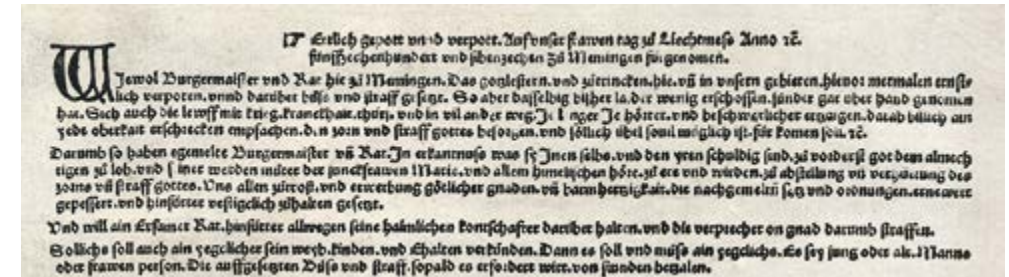 ☞ Etlich gepott vnnd verpott. Auf vnser frawen tag zů Liechtmeß Anno ꝛc̄.
fünffzechenhundert vnd sibenzechen Zů Memingen fürgenomen.
WJewol Burgermaister vnd Rat hie zů Memingen. Das gotzlestern. vnd zůtrincken. hie. vñ in vnsern gebieten. hieuor mermalen ernst⸗
lich verpoten. vnnd darüber bůß vnd straff gesetzt. So aber dasselbig bißher laider wenig erschossen. sunder gar über hand genomen
hat. Sich auch die lewff mit krieg. kranckhait. thür. vnd in vil ander weg. Je lenger Je hörter. vnd beschwerlicher erzaigen. darab billich ain
yede oberkait erschrecken empfachen. den zorn vnd straff gottes besorgen. vnd söllich übel souil müglich ist. für komen soll. ꝛc̄.
Darumb so haben egemelte Burgermaister vñ Rat. Jn erkantnuß was sy Jnen selbs. vnd den yren schuldig sind. zů vorderst got dem almech
tigen zů lob. vnd seiner werden můter der junckfrawen Marie. vnd allem himelischen hőre. zů ere vnd wirden. zů abstellung vñ verhüttung des
zorns vñ straff gottes. Vns allen zůtrost. vnd erwerbung gőtlicher gnaden. vñ barmhertzigkait. die nachgemeltñ satz vnd ordnungen. ernewert
gepessert. vnd hinfürter vestigclich zůhalten gesetzt.
Vnd will ain Ersamer Rat. hinfürter allwegen seine haimlichen kontschafter darüber halten. vnd die verprecher on gnad darumb straffen.
Sollichs soll auch ain yegclicher sein weyb. kinden. vnd Ehalten verkünden. Dann es soll vnd můß ain yegclichs. Es sey jung oder alt. Manns
oder frawen person. Die auffgesetzten Bůß vnd straff. sopald es erfordert wirt. von stunden bezalen.